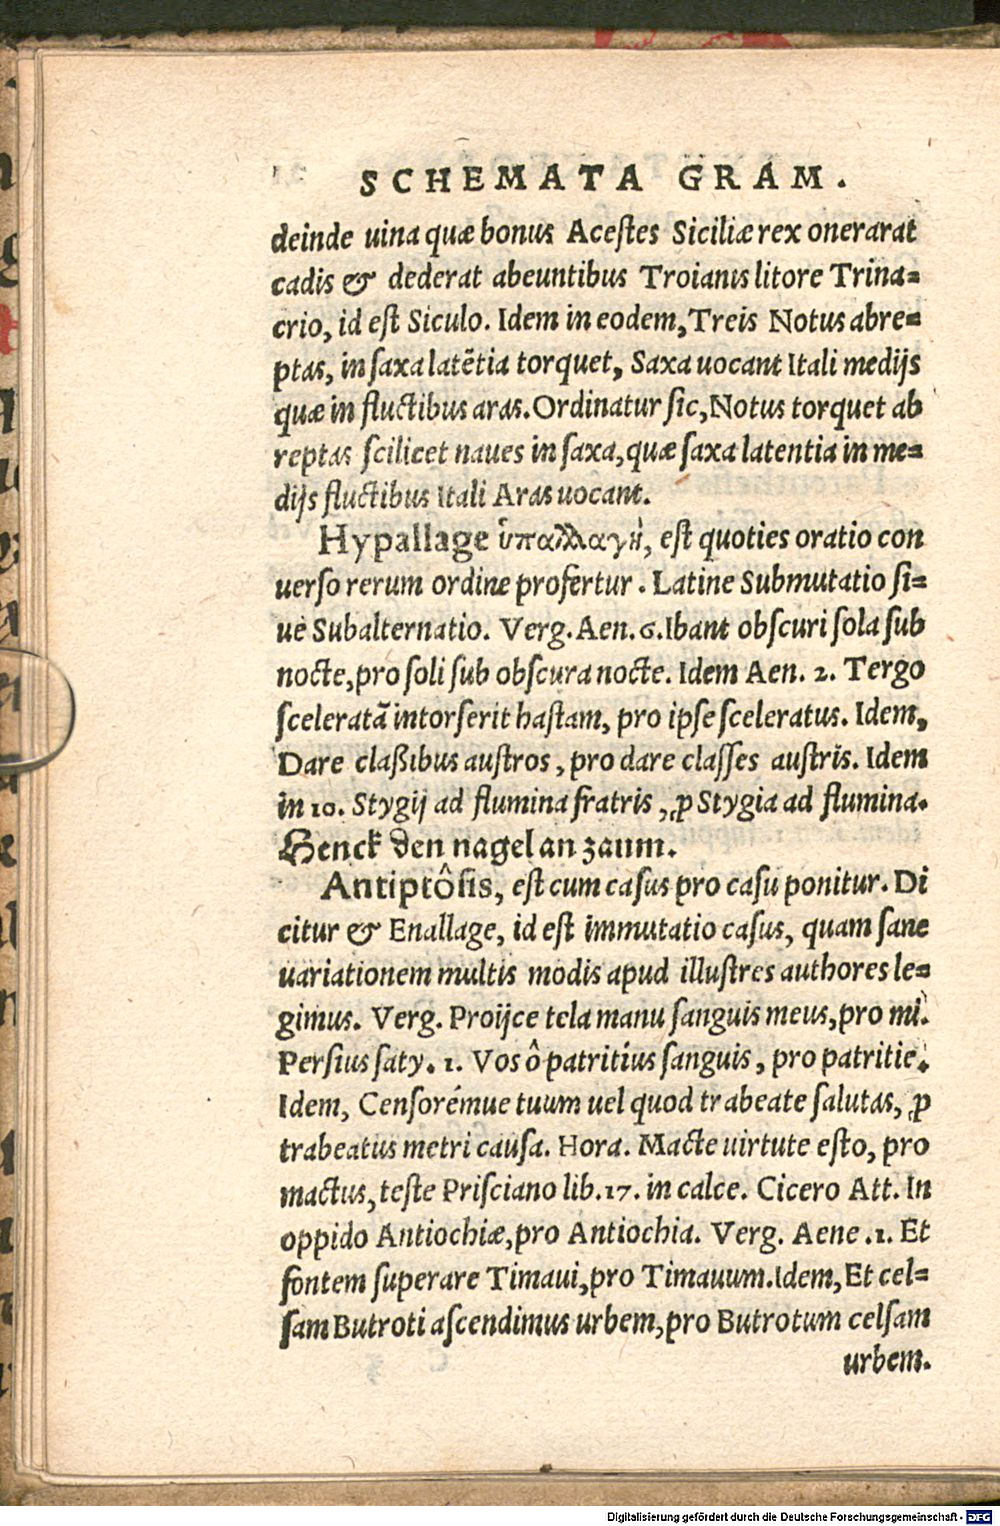 SCHEMATA GRAM.
deinde uina quæ bonus Acestes Siciliæ rex onerarat
cadis & dederat abeuntibus Troianis litore Trina=
crio, id est Siculo. Idem in eodem, Treis Notus abre=
ptas, in saxa latẽtia torquet, Saxa uocant Itali medijs
quæ in fluctibus aras. Ordinatur sic, Notus torquet ab
reptas scilicet naues in saxa, quæ saxa latentia in me=
dijs fluctibus Itali Aras uocant.
Hypallage ὑπαλλαγὴ, est quoties oratio con
uerso rerum ordine profertur. Latine Submutatio si=
ue Subalternatio. Verg. Aen. 6. Ibant obscuri sola sub
nocte, pro soli sub obscura nocte. Idem Aen. 2. Tergo
sceleratã intorserit hastam, pro ipse sceleratus. Idem,
Dare claßibus austros, pro dare classes austris. Idem
in 10. Stygij ad flumina fratris, ꝓ Stygia ad flumina.
Henck den nagel an zaum.
Antiptôsis, est cum casus pro casu ponitur. Di
citur & Enallage, id est immutatio casus, quam sane
uariationem multis modis apud illustres authores le=
gimus. Verg. Proijce tela manu sanguis meus, pro mi.
Persius saty. 1. Vos ô patritius sanguis, pro patritie.
Idem, Censorémue tuum uel quod trabeate salutas, ꝓ
trabeatus metri causa. Hora. Macte uirtute esto, pro
mactus, teste Prisciano lib. 17. in calce. Cicero Att. In
oppido Antiochiæ, pro Antiochia. Verg. Aene. 1. Et
fontem superare Timaui, pro Timauum. Idem, Et cel=
sam Butroti ascendimus urbem, pro Butrotum celsam
urbem.
Digitalisierung gefördert durch die Deutsche Forschungsgemeinschaft - DFG